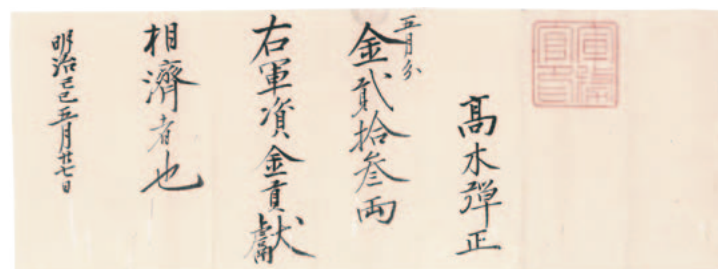 高木弾正
五月分
金貳拾叁両
右軍資金貢献
相濟者也
明治己巳五月廿七日